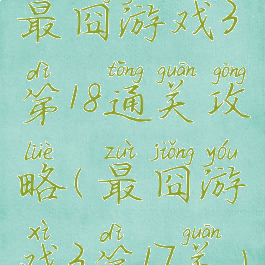 最囧游戏3
dì tōng guān gōng
第18通关攻
lüè zuì jiǒng yóu
略(最囧游
xì dì guān
戏3第17关)